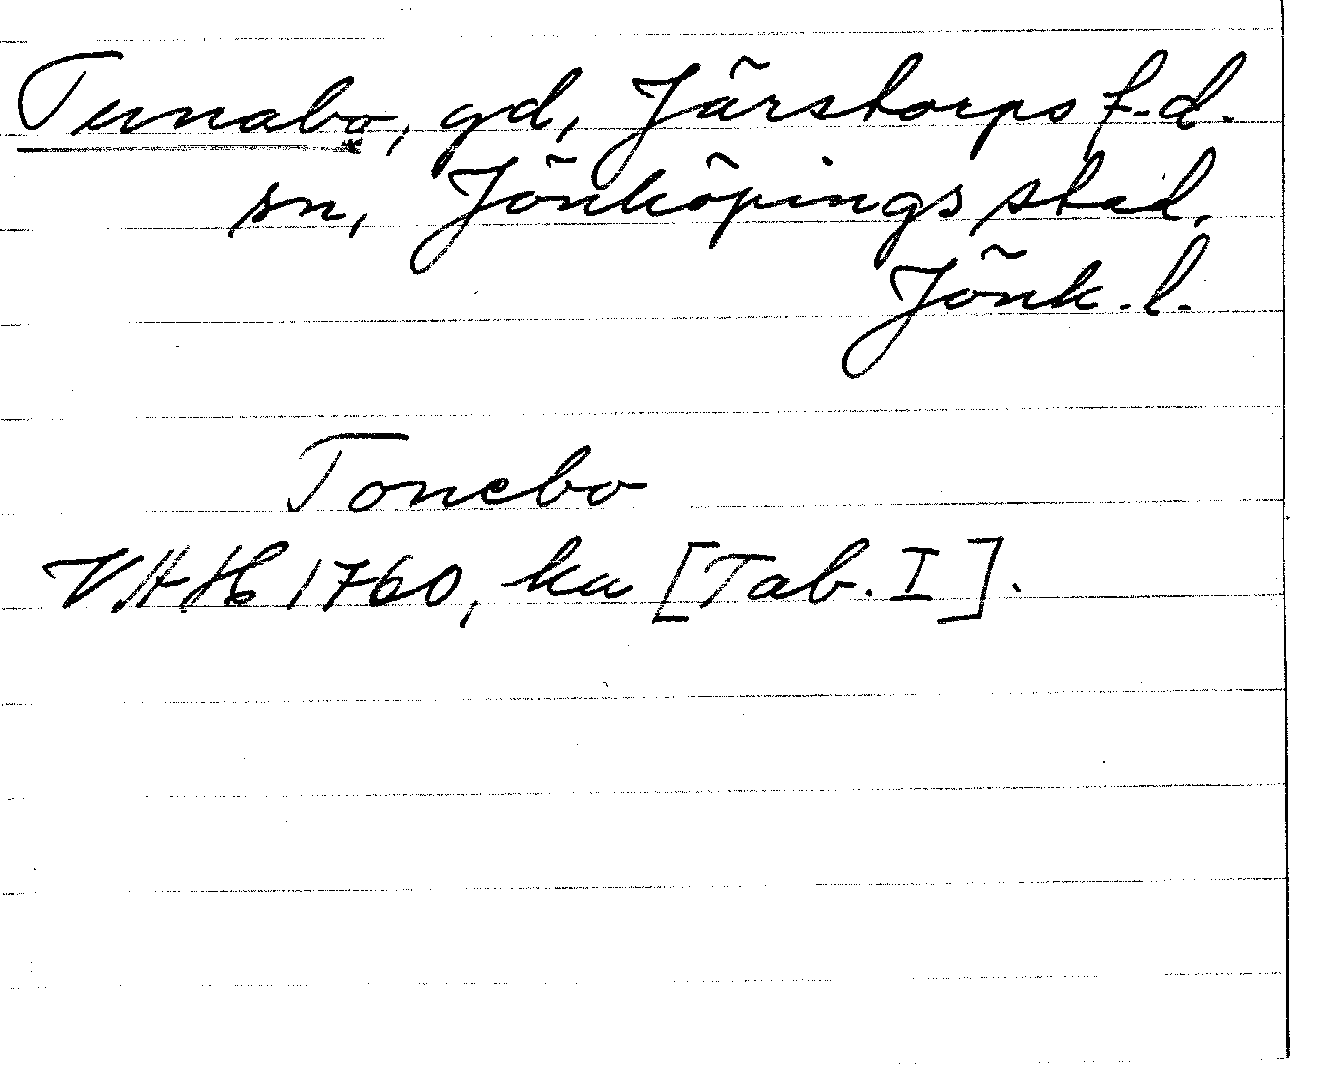 Tunabo, gd, Järstorps f.d.
sn, Jönköpings stad,
Jönk. l.
Tonebo
VAH 1760, ka [Tab. I].